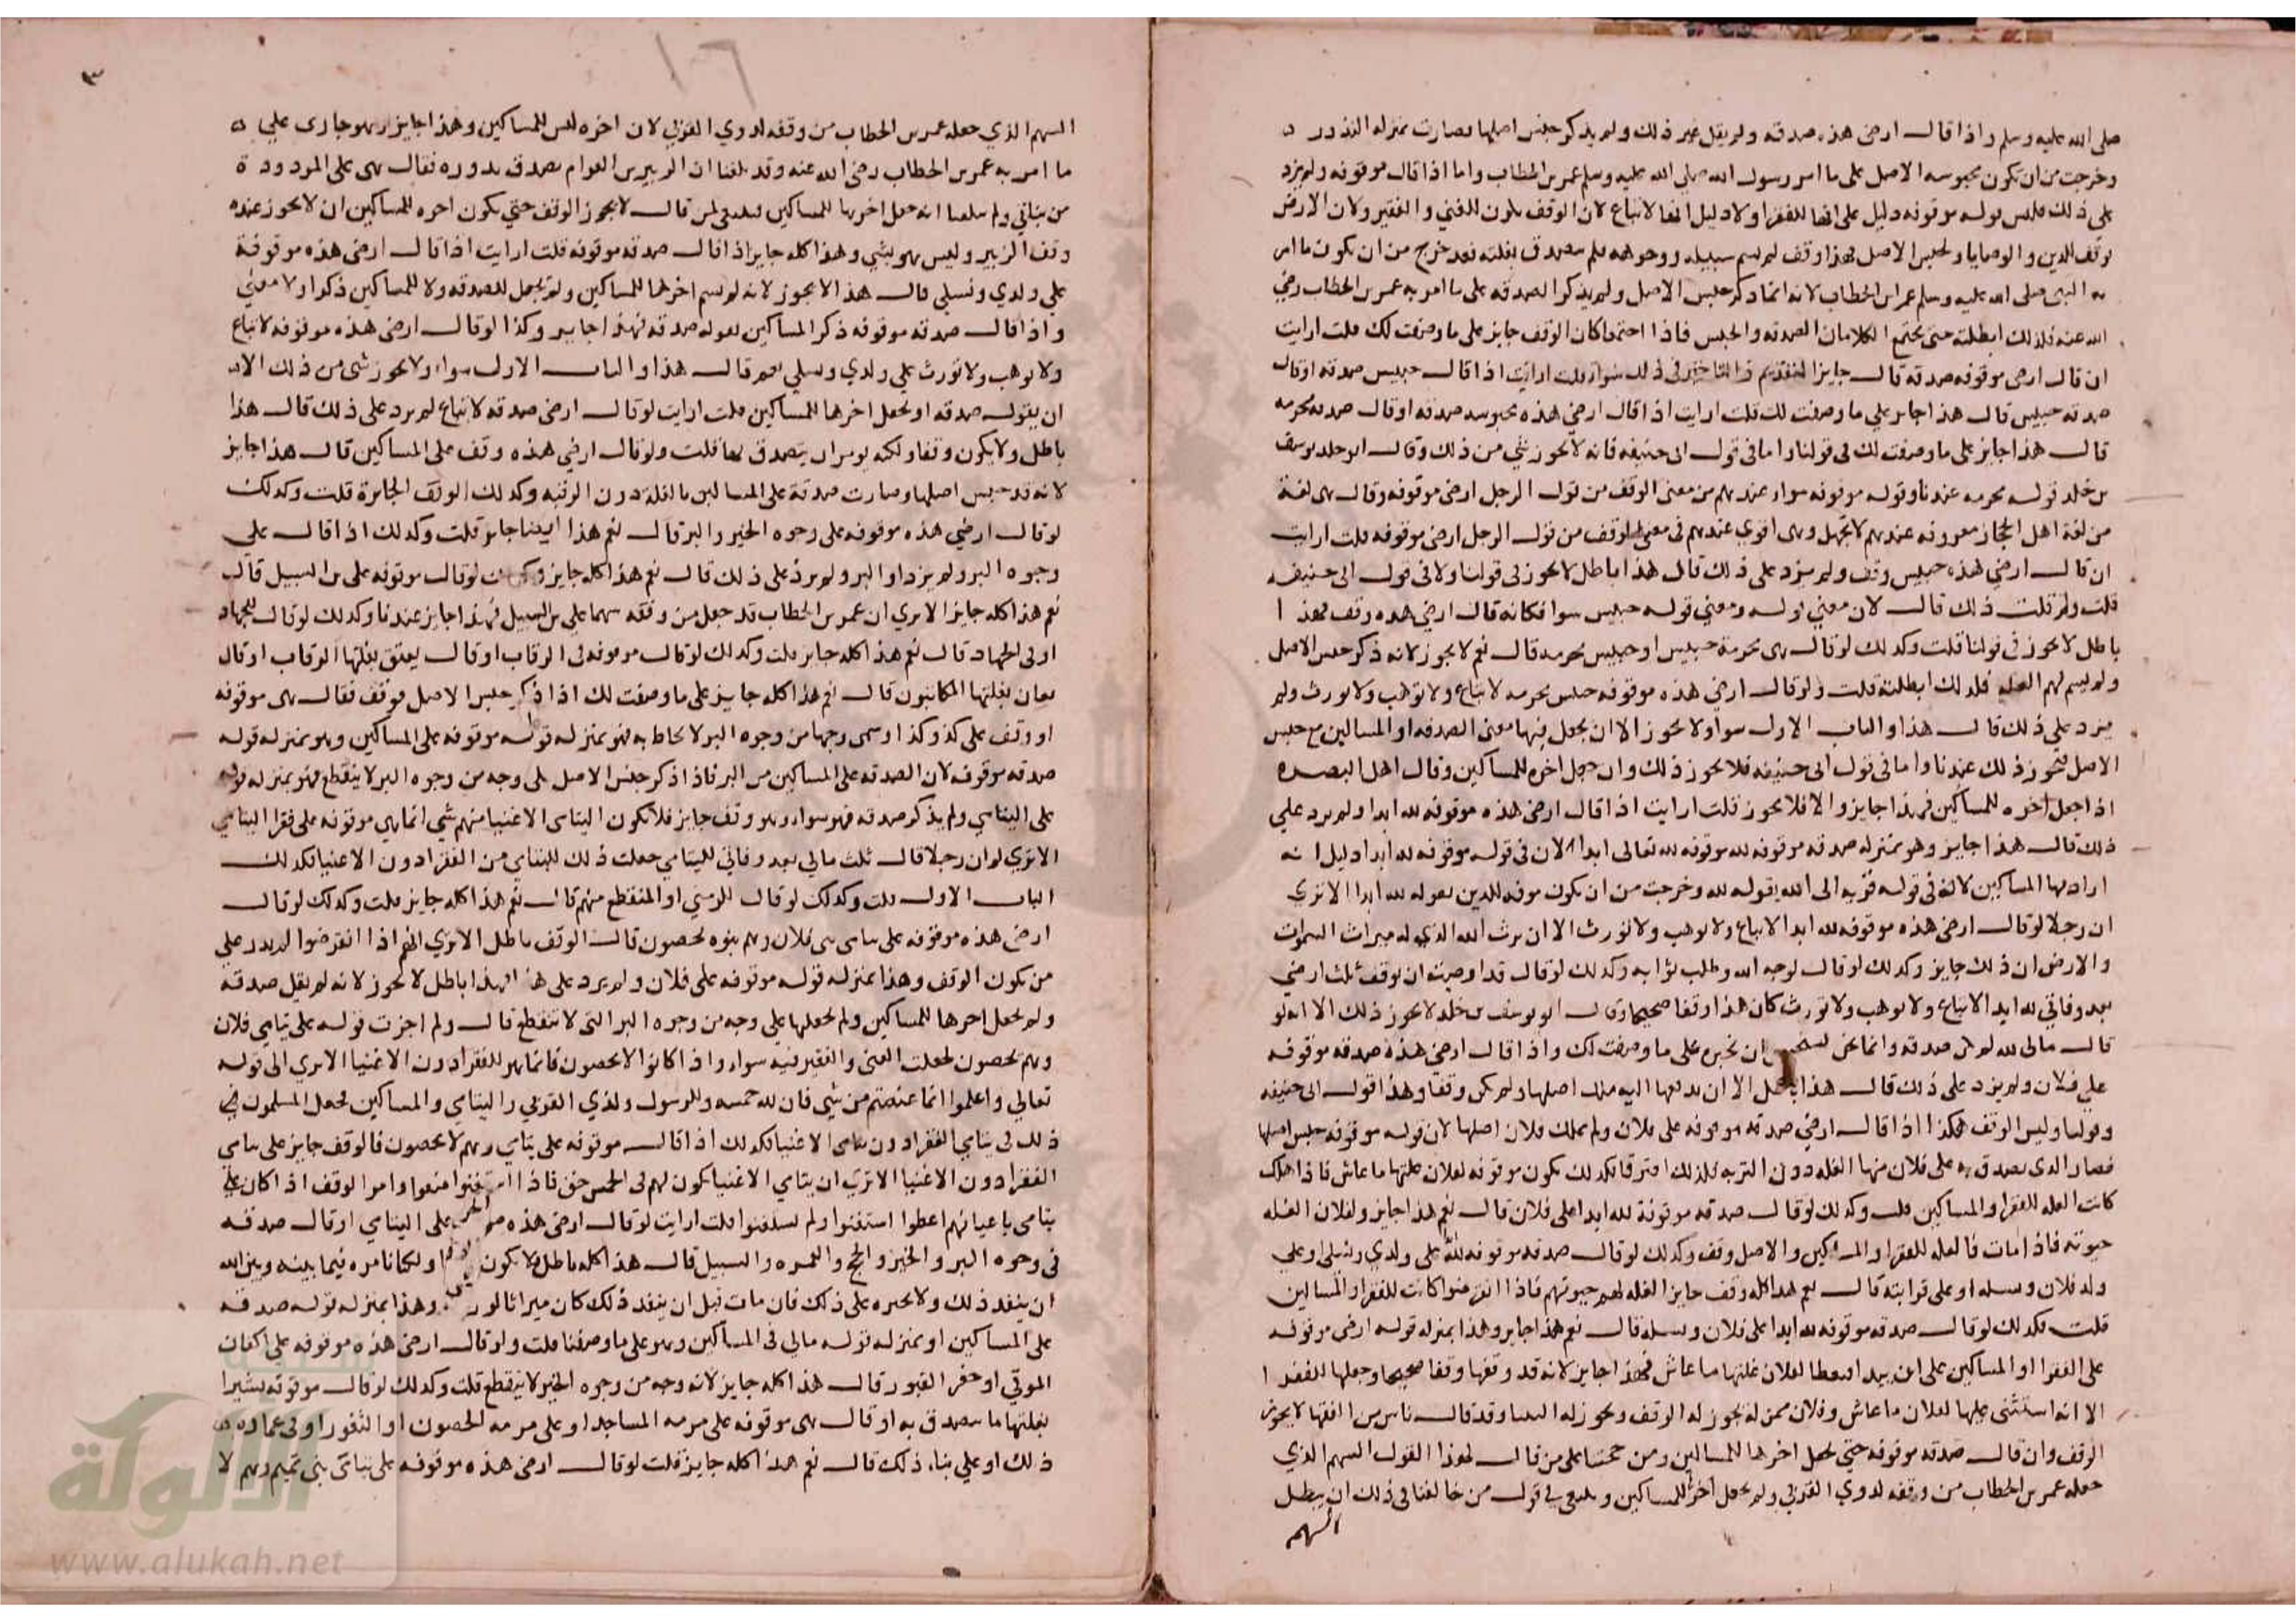 صلى الله عليه وسلم واذا قال ارضى هذه صدقه ولم يقل غير ذلك ولم يذكر حبس اصلها فصارت بمنزله النذور
وخرجت من ان تكون محبوسه الاصل على ما امر رسول الله صلى الله عليه وسلم عمر بن الخطاب واما اذا قال موقوفه ولم يزد
على ذلك فليس قوله موقوفه دليل على انها للفقراء ولا دليل انها لا تباع لان الوقف يكون للغني والفقير ولان الارض
توقف للدين والوصايا ولحبس الاصل فهذا وقف لم يسم سبيله ووجوهه فلم يتصدق بغلته فقد خرج من ان يكون ما امر
به النبي صلى الله عليه وسلم عمر بن الخطاب لانه انما ذكر حبس الاصل ولم يذكر الصدقه على ما امر به عمر بن الخطاب رضي
الله عنه فلذلك ابطلته حتى يجتمع الكلامان الصدقه والحبس فاذا اجتمعا كان الوقف جايز على ما وصفت لك قلت ارايت
ان قال ارضى موقوفه صدقه قال جايز التقديم والتاخير في ذلك سواء قلت ارايت اذا قال حبيس صدقه او قال
صدقه حبيس قال هذا جايز على ما وصفت لك قلت ارايت اذا قال ارضي هذه محبوسه صدقه او قال صدقه محرمه
قال هذا جايز على ما وصفت لك في قولنا واما في قول ابى حنيفه فانه لا يجوز شي من ذلك وقال ابو خلد يوسف
بن خلد قوله محرمه عندنا وقوله موقوفه سواء عندهم من معنى الوقف من قول الرجل ارضى موقوفه وقال هى لغة
من لغة اهل الحجاز معروفه عندهم لا تجهل وهى اقوي عندهم في معنى الوقف من قول الرجل ارضى موقوفه قلت ارايت
ان قال ارضي هذه حبيس وقف ولم يزد على ذلك قال هذا باطل لا يجوز في قولنا ولا في قول ابى حنيفه
قلت ولم قلت ذلك قال لان معني قوله ومعني قوله حبيس سوا فكانه قال ارضى هذه وقف فهذا
باطل لا يجوز في قولنا قلت وكذلك لو قال هى محرمة حبيس او حبيس محرمه قال نعم لا يجوز لانه ذكر حبس الاصل
ولم يسم لهم الغله فلذلك ابطلته قلت ولو قال ارضى هذه موقوفه حبس محرمه لا تباع ولا توهب ولا تورث ولم
يزد على ذلك قال هذا والباب الاول سواء ولا يجوز الا ان يجعل فيها معنى الصدقه او المساكين مع حبس
الاصل فيجوز ذلك عندنا واما في قول ابى حنيفه فلا يجوز ذلك وان جعل اخره للمساكين وقال اهل البصره
اذا جعل اخره للمساكين فهذا جايز والا فلا يجوز قلت ارايت اذا قال ارضى هذه موقوفه لله ابدا ولم يزد علي
ذلك قال هذا جايز وهو بمنزله صدقه موقوفه لله موقوفه لله تعالى ابدا لان في قوله موقوفه لله ابدا دليل انه
اراد بها المساكين لانه في قوله قربه الى الله بقوله لله وخرجت من ان يكون موقفه للدين بقوله لله ابدا الا ترى
ان رجلا لو قال ارضى هذه موقوفه لله ابدا لا تباع ولا توهب ولا تورث الا ان يرث الله الذي له ميراث السموات
والارض ان ذلك جايز وكذلك لو قال لوجه الله وطلب ثوابه وكذلك لو قال قد اوصيت ان توقف ثلث ارضي
بعد وفاتي لله ابدا لا تباع ولا توهب ولا تورث كان هذا وقفا صحيحا وقال ابو يوسف بن خلد لا يجوز ذلك الا انه لو
قال مالى لله لم يكن صدقه وانما نحن ان نخبره على ما وصفت لك واذا قال ارضى هذه صدقه موقوفه
علي فلان ولم يزد على ذلك قال هذا باطل الا ان يدفعها اليه ملك اصلها ولم يكن وقفا وهذا قول ابى حنيفه
وقولنا وليس الوقف هكذا اذا قال ارضي صدقه موقوفه على فلان ولم يملك فلان اصلها لان قوله موقوفه حبس اصلها
فصار الذى يصدق به على فلان منها الغله دون التربه فلذلك افترقا فكذلك يكون موقوفه لفلان غلتها ما عاش فاذا هلك
كانت الغله للفقراء والمساكين قلت وكذلك لو قال صدقه موقوفة لله ابدا على فلان قال نعم هذا جايز ولفلان الغله
حيوته فاذا مات فالغله للفقراء والمساكين والاصل وقف وكذلك لو قال صدقه موقوفه لله على ولدي ونسلي وعلي
ولد فلان ونسله او على قرابته قال نعم هذا كله وقف جايز الغله لهم حيوتهم فاذا انقرضوا كانت للفقراء والمساكين
قلت فكذلك لو قال صدقه موقوفه لله ابدا على فلان ونسله قال نعم هذا جايز وهذا بمنزله قوله ارضى موقوفه
على الفقراء والمساكين على ان يبدا فيعطا لفلان غلتها ما عاش فهذا جايز لانه قد وقفها وقفا صحيحا وجعلها للفقرا
الا انه استثنى غلتها لفلان ما عاش وفلان ممن لا يجوز له الوقف ويجوز له وقد قال ناس من الفقها لا يجوز
الوقف وان قال صدقه موقوفه حتي يجعل اخرها للمساكين ومن حجتنا على من قال بهذا القول السهم الذي
جعله عمر بن الخطاب من وقفه لذوي القربي ولم يجعل اخره للمساكين وينبغي في قول من خالفنا في ذلك ان يبطل
السهم
٣
١٠٦
السهم الذي جعله عمر بن الخطاب من وقفه لذوي القربي لان اخره ليس للمساكين وهذا جايز وهو جارى علي
ما امر به عمر بن الخطاب رضى الله عنه وقد بلغنا ان الزبير بن العوام تصدق بدوره فقال هى على المردودة
من بناتي ولم يبلغنا انه جعل اخرها للمساكين فينبغى لمن قال لا يجوز الوقف حتي يكون اخره للمساكين ان لا يجوز عنده
وقف الزبير وليس هو بشي وهذا كله جايز اذا قال صدقه موقوفه قلت ارايت اذا قال ارضى هذه موقوفة
علي ولدي ونسلي قال هذا لا يجوز لانه لم يسم اخرها للمساكين ولم يجعل للصدقه ولا للمساكين ذكرا ولا معنى
واذا قال صدقه موقوفه ذكر المساكين بقوله صدقه فهذا جايز وكذا لو قال ارضى هذه موقوفه لا تباع
ولا توهب ولا تورث علي ولدي ونسلي نعم قال هذا والباب الاول سواء ولا يجوز شى من ذلك الا
ان يقول صدقه او يجعل اخرها للمساكين قلت ارايت لو قال ارضى صدقه لا تباع لم يزد على ذلك قال هذا
باطل ولا يكون وقفا ولكنه يومر ان يتصدق بها قلت ولو قال ارضي هذه وقف على المساكين قال هذا جايز
لانه قد حبس اصلها وصارت صدقة على المساكين بالغلة دون الرقبه وكذلك الوقف الجايزة قلت وكذلك
لو قال ارضي هذه موقوفه على وجوه الخير والبر قال نعم هذا ايضا جايز قلت وكذلك اذا قال على
وجوه البر ولم يزد او البر ولم يزد على ذلك قال نعم هذا كله جايز وكذلك لو قال موقوفه على بن السبيل قال
نعم هذا كله جايز الا ترى ان عمر بن الخطاب قد جعل من وقفه سهما على بن السبيل فهذا جايز عندنا وكذلك لو قال للجهاد
او في الجهاد قال نعم هذا كله جايز قلت وكذلك لو قال موقوفه في الرقاب او قال يعتق بغلتها الرقاب او قال
يعان بغلتها المكاتبون قال نعم هذا كله جايز على ما وصفت لك اذا ذكر حبس الاصل فوقف فقال هى موقوفه
او وقف على كذا وكذا وسمى وجها من وجوه البر لا يحاط به فهو بمنزله قوله موقوفه على المساكين وهو بمنزله قوله
صدقه موقوفه لان الصدقه على المساكين من البر فاذا ذكر حبس الاصل على وجه من وجوه البر لا ينقطع فهو بمنزله قوله
على اليتامي ولم يذكر صدقه فهو سواء وهو وقف جايز فلا يكون اليتامى الاغنيا منهم شي انما هي موقوفه على فقرا اليتامي
الا ترى لو ان رجلا قال ثلث مالي بعد وفاتي لليتامي جعلت ذلك لليتامي من الفقرا دون الاغنيا فكذلك
الباب الاول قلت وكذلك لو قال للزمني او المنقطع منهم قال نعم هذا كله جايز قلت وكذلك لو قال
ارضى هذه موقوفه على يتامى بنى فلان وهم بنوه يحصون قال الوقف باطل الا ترى انهم اذا انقرضوا لم يدر علي
من يكون الوقف وهذا بمنزله قوله موقوفه على فلان ولم يزد على هذا فهذا باطل لا يجوز لانه لم يقل صدقه
ولم يجعل اخرها للمساكين ولم يجعلها علي وجه من وجوه البر التى لا تنقطع قال ولم اجزت قوله على يتامي فلان
وهم يحصون لجعلت الغنى والفقير فيه سواء واذا كانوا لا يحصون فانما هو للفقراء دون الاغنيا الا ترى الى قوله
تعالى واعلموا انما غنمتم من شي فان لله خمسه وللرسول ولذي القربي واليتامي والمساكين فجعل المسلمون
ذلك في يتامي الفقراء دون يتامي الاغنيا فكذلك اذا قال موقوفه على يتامي وهم لا يحصون فالوقف جايز على يتامى
الفقرا دون الاغنيا الا ترى ان يتامي الاغنيا يكون لهم في الخمس حق فاذا استغنوا منعوا وامر الوقف اذا كان علي
يتامى باعيانهم اعطوا استغنوا ولم يستغنوا قلت ارايت لو قال ارضى هذه على اليتامي او قال صدقه
فى وجوه البر والخير والحج والعمره والسبيل قال هذا كله باطل ولا يكون ولكنا نامره فيما بينه وبين الله
ان ينفذ ذلك ولا نجبره على ذلك فان مات قبل ان ينفذ ذلك كان ميراثا لورثته وهذا بمنزله قوله صدقه
على المساكين او بمنزله قوله مالي في المساكين وهو على ما وصفنا قلت ولو قال ارضى هذه موقوفه على اكفان
الموتي او حفر القبور قال هذا كله جايز لانه وجه من وجوه الخير لا ينقطع قلت وكذلك لو قال موقوفه يشترا
بغلتها ما يتصدق به او قال هى موقوفه على مرمه المساجد او على مرمه الحصون او الثغور او في عماره
ذلك او علي بناء ذلك قال نعم هذا كله جايز قلت لو قال ارضى هذه موقوفه على يتامى بني تميم وهم لا
شبكة
الألوكة
www.alukah.net